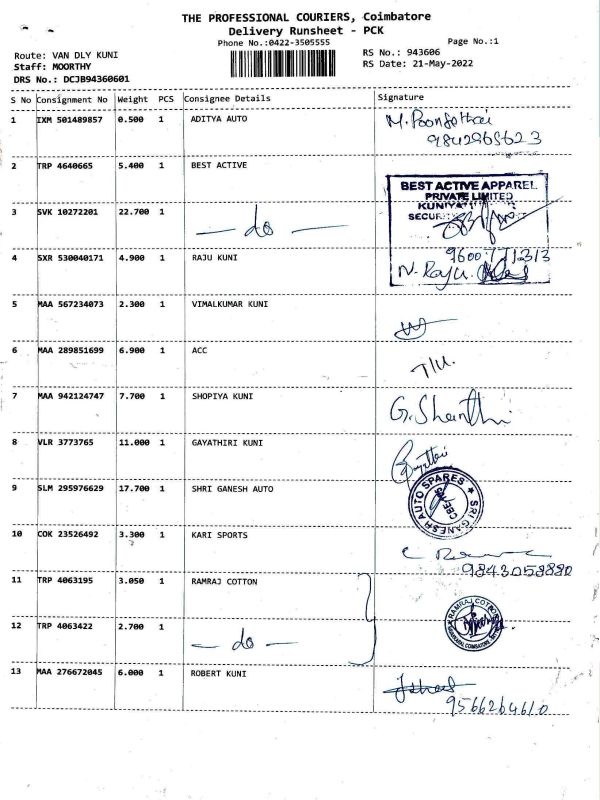 THE PROFESSIONAL COURIERS, Coimbatore
Delivery Runsheet - PCK
Phone No.:0422-3505555
Page No.:1
Route: VAN DLY KUNI
RS No.: 943606
Staff: MOORTHY
RS Date: 21-May-2022
DRS No.: DCJB94360601
S No Consignment No Weight PCS Consignee Details Signature
1 IXM 501489857 0.500 1 ADITYA AUTO
2 TRP 4640665 5.400 1 BEST ACTIVE
BEST ACTIVE APPAREL
PRIVATE LIMITED
3 SVK 10272201 22.700 1 — do —
4 SXR 530040171 4.900 1 RAJU KUNI N. Raju
5 MAA 567234073 2.300 1 VIMALKUMAR KUNI
6 MAA 289851699 6.900 1 ACC
7 MAA 942124747 7.700 1 SHOPIYA KUNI G. Shanthi
8 VLR 3773765 11.000 1 GAYATHIRI KUNI
9 SLM 295976629 17.700 1 SHRI GANESH AUTO SRI GANESH AUTO SPARES
10 COK 23526492 3.300 1 KARI SPORTS
9843058880
11 TRP 4063195 3.050 1 RAMRAJ COTTON RAMRAJ COTTON
12 TRP 4063422 2.700 1 — do —
13 MAA 276672045 6.000 1 ROBERT KUNI
9566264610